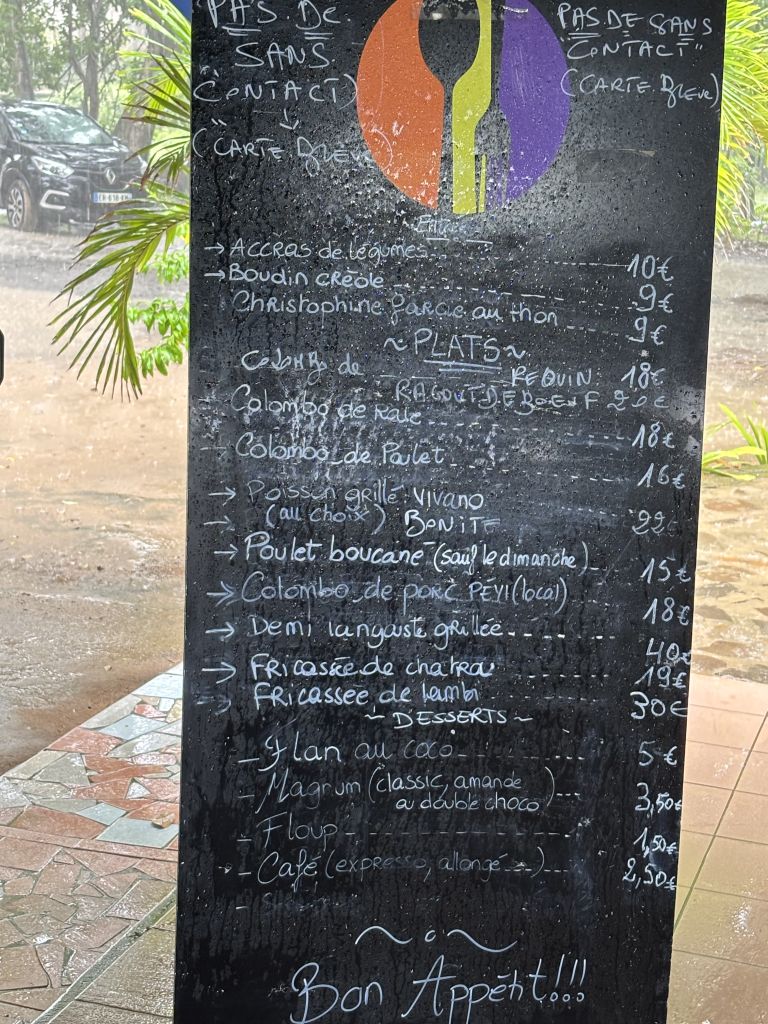 PAS DE
SANS
"CONTACT)
(CARTE BLEVE)
PAS DE SANS
CONTACT"
(CARTE BLEVE)
Entrée
→ Accras de légumes 10€
→ Boudin créole 9€
Christophine farcie au thon 9€
~ PLATS ~
COLOMBO de REQUIN 18€
RAGOUT DE BOEUF 20€
Colombo de Raie 18€
Colombo de Poulet 16€
→ Poisson grillé: VIVANO
(au choix) BONITE 22€
→ Poulet boucané (sauf le dimanche) 15€
→ Colombo de porc PÉYI (local) 18€
→ Demi langouste grillée 40€
→ FRICASSÉE de chatrou 19€
→ FRICASSEE de lambi 30€
~ DESSERTS ~
- Flan au coco 5€
- Magnum (classic, amande
ou double choco) 3,50€
- Floup 1,50€
- Café (expresso, allongé...) 2,50€
Bon Appétit!!!